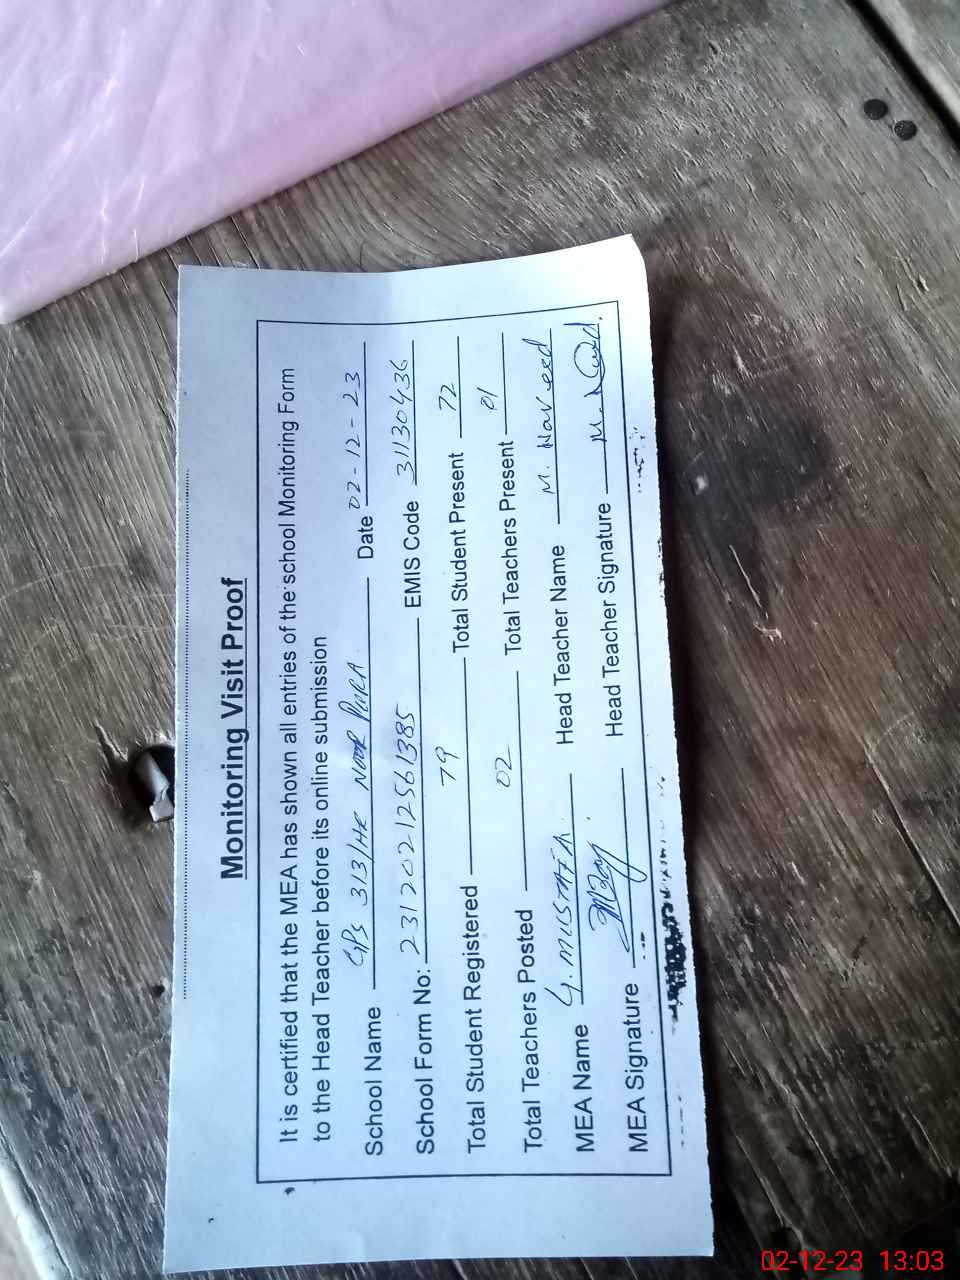 Monitoring Visit Proof
It is certified that the MEA has shown all entries of the school Monitoring Form
to the Head Teacher before its online submission
School Name GPS 313/HR NOOR PURA Date 02-12-23
School Form No: 231202121256 1385 EMIS Code 31130436
Total Student Registered 79 Total Student Present 72
Total Teachers Posted 02 Total Teachers Present 01
MEA Name G. MUSTAFA Head Teacher Name M. Naveed
MEA Signature Head Teacher Signature
02-12-23 13:03